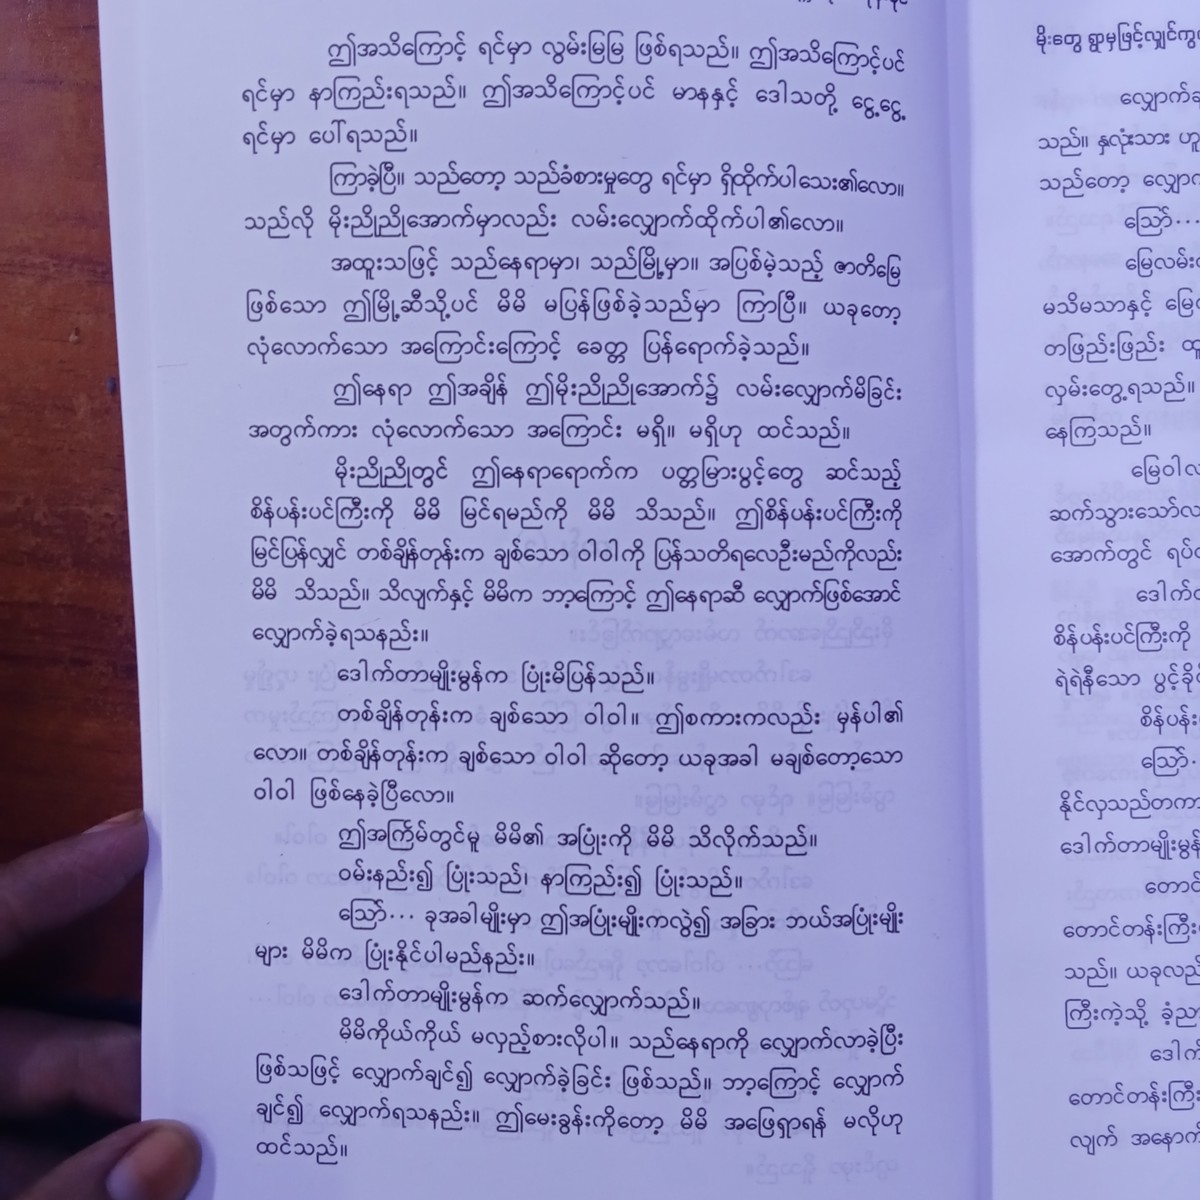 ဤအသိကြောင့် ရင်မှာ လွမ်းမြမြ ဖြစ်ရသည်။ ဤအသိကြောင့်ပင်
ရင်မှာ နာကြည်းရသည်။ ဤအသိကြောင့်ပင် မာနနှင့် ဒေါသတို့ ငွေ့ငွေ့
ရင်မှာ ပေါ်ရသည်။
ကြာခဲ့ပြီ။ သည်တော့ သည်ခံစားမှုတွေ ရင်မှာ ရှိထိုက်ပါသေး၏လော။
သည်လို မိုးညိုညိုအောက်မှာလည်း လမ်းလျှောက်ထိုက်ပါ၏လော။
အထူးသဖြင့် သည်နေရာမှာ၊ သည်မြို့မှာ။ အပြစ်မဲ့သည့် ဇာတိမြေ
ဖြစ်သော ဤမြို့ဆီသို့ပင် မိမိ မပြန်ဖြစ်ခဲ့သည်မှာ ကြာပြီ။ ယခုတော့
လုံလောက်သော အကြောင်းကြောင့် ခေတ္တ ပြန်ရောက်ခဲ့သည်။
ဤနေရာ ဤအချိန် ဤမိုးညိုညိုအောက်၌ လမ်းလျှောက်မိခြင်း
အတွက်ကား လုံလောက်သော အကြောင်း မရှိ။ မရှိဟု ထင်သည်။
မိုးညိုညိုတွင် ဤနေရာရောက်က ပတ္တမြားပွင့်တွေ ဆင်သည့်
စိန်ပန်းပင်ကြီးကို မိမိ မြင်ရမည်ကို မိမိ သိသည်။ ဤစိန်ပန်းပင်ကြီးကို
မြင်ပြန်လျှင် တစ်ချိန်တုန်းက ချစ်သော ဝါဝါကို ပြန်သတိရလေဦးမည်ကိုလည်း
မိမိ သိသည်။ သိလျက်နှင့် မိမိက ဘာ့ကြောင့် ဤနေရာဆီ လျှောက်ဖြစ်အောင်
လျှောက်ခဲ့ရသနည်း။
ဒေါက်တာမျိုးမွန်က ပြုံးမိပြန်သည်။
တစ်ချိန်တုန်းက ချစ်သော ဝါဝါ။ ဤစကားကလည်း မှန်ပါ၏
လော။ တစ်ချိန်တုန်းက ချစ်သော ဝါဝါ ဆိုတော့ ယခုအခါ မချစ်တော့သော
ဝါဝါ ဖြစ်နေခဲ့ပြီလော။
ဤအကြိမ်တွင်မူ မိမိ၏ အပြုံးကို မိမိ သိလိုက်သည်။
ဝမ်းနည်း၍ ပြုံးသည်၊ နာကြည်း၍ ပြုံးသည်။
ဪ... ခုအခါမျိုးမှာ ဤအပြုံးမျိုးကလွဲ၍ အခြား ဘယ်အပြုံးမျိုး
များ မိမိက ပြုံးနိုင်ပါမည်နည်း။
ဒေါက်တာမျိုးမွန်က ဆက်လျှောက်သည်။
မိမိကိုယ်ကိုယ် မလှည့်စားလိုပါ။ သည်နေရာကို လျှောက်လာခဲ့ပြီး
ဖြစ်သဖြင့် လျှောက်ချင်၍ လျှောက်ခဲ့ခြင်း ဖြစ်သည်။ ဘာ့ကြောင့် လျှောက်
ချင်၍ လျှောက်ရသနည်း။ ဤမေးခွန်းကိုတော့ မိမိ အဖြေရှာရန် မလိုဟု
ထင်သည်။
မိုးတွေ ရွာမှဖြင့်လျှင်
လျှောက်
သည်။ နှလုံးသား
သည်တော့
ဪ...
မြေလမ်း
မသိမသာနှင့် မြေ
တဖြည်းဖြည်း
လှမ်းတွေ့ရသည်။
နေကြသည်။
မြေဝါ
ဆက်သွားသော်
အောက်တွင် ရပ်
ဒေါက်
စိန်ပန်းပင်ကြီးကို
ရဲရဲနီသော ပွင့်ခို
စိန်ပန်း
ဪ.
နိုင်လှသည်တကာ
ဒေါက်တာမျိုးမွန်
တောင်
တောင်တန်းကြီး
သည်။ ယခုလည်
ကြီးကဲ့သို့
ဒေါက်
တောင်တန်းကြီး
လျက် အနောက်